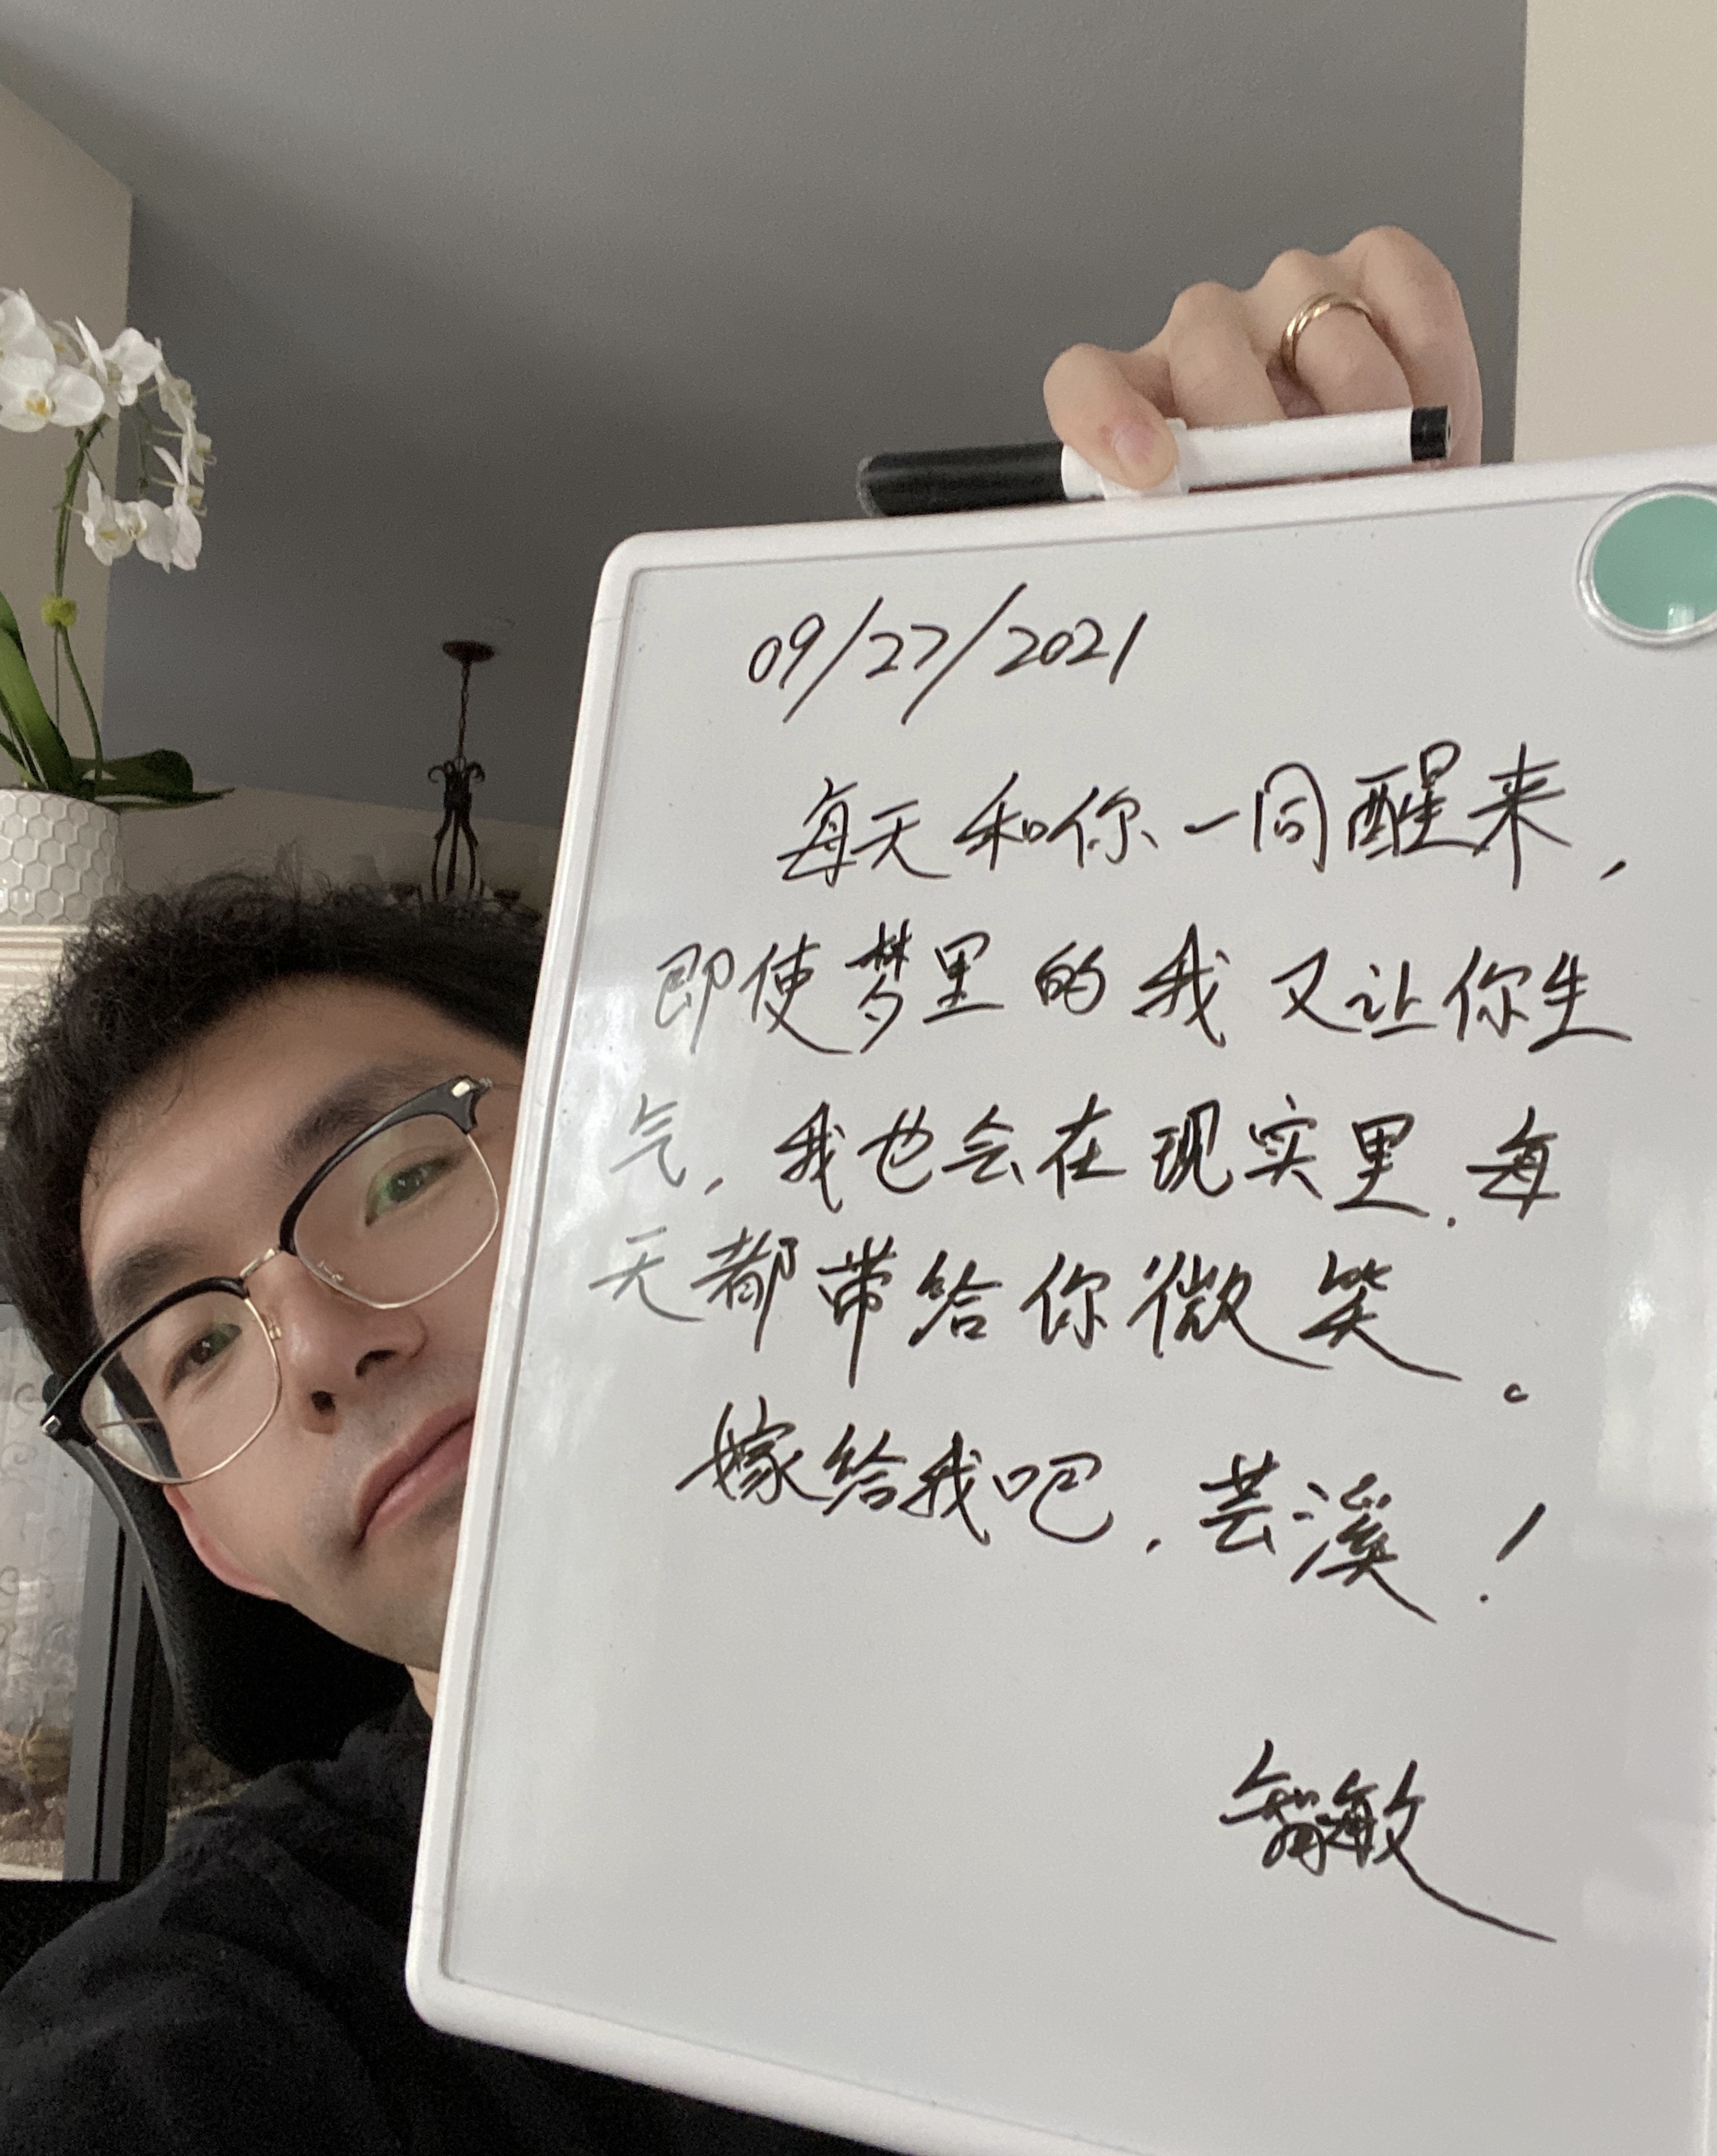 09/27/2021
每天和你一同醒来，
即使梦里的我又让你生
气，我也会在现实里，每
天都带给你微笑。
嫁给我吧，芸溪！
智敏